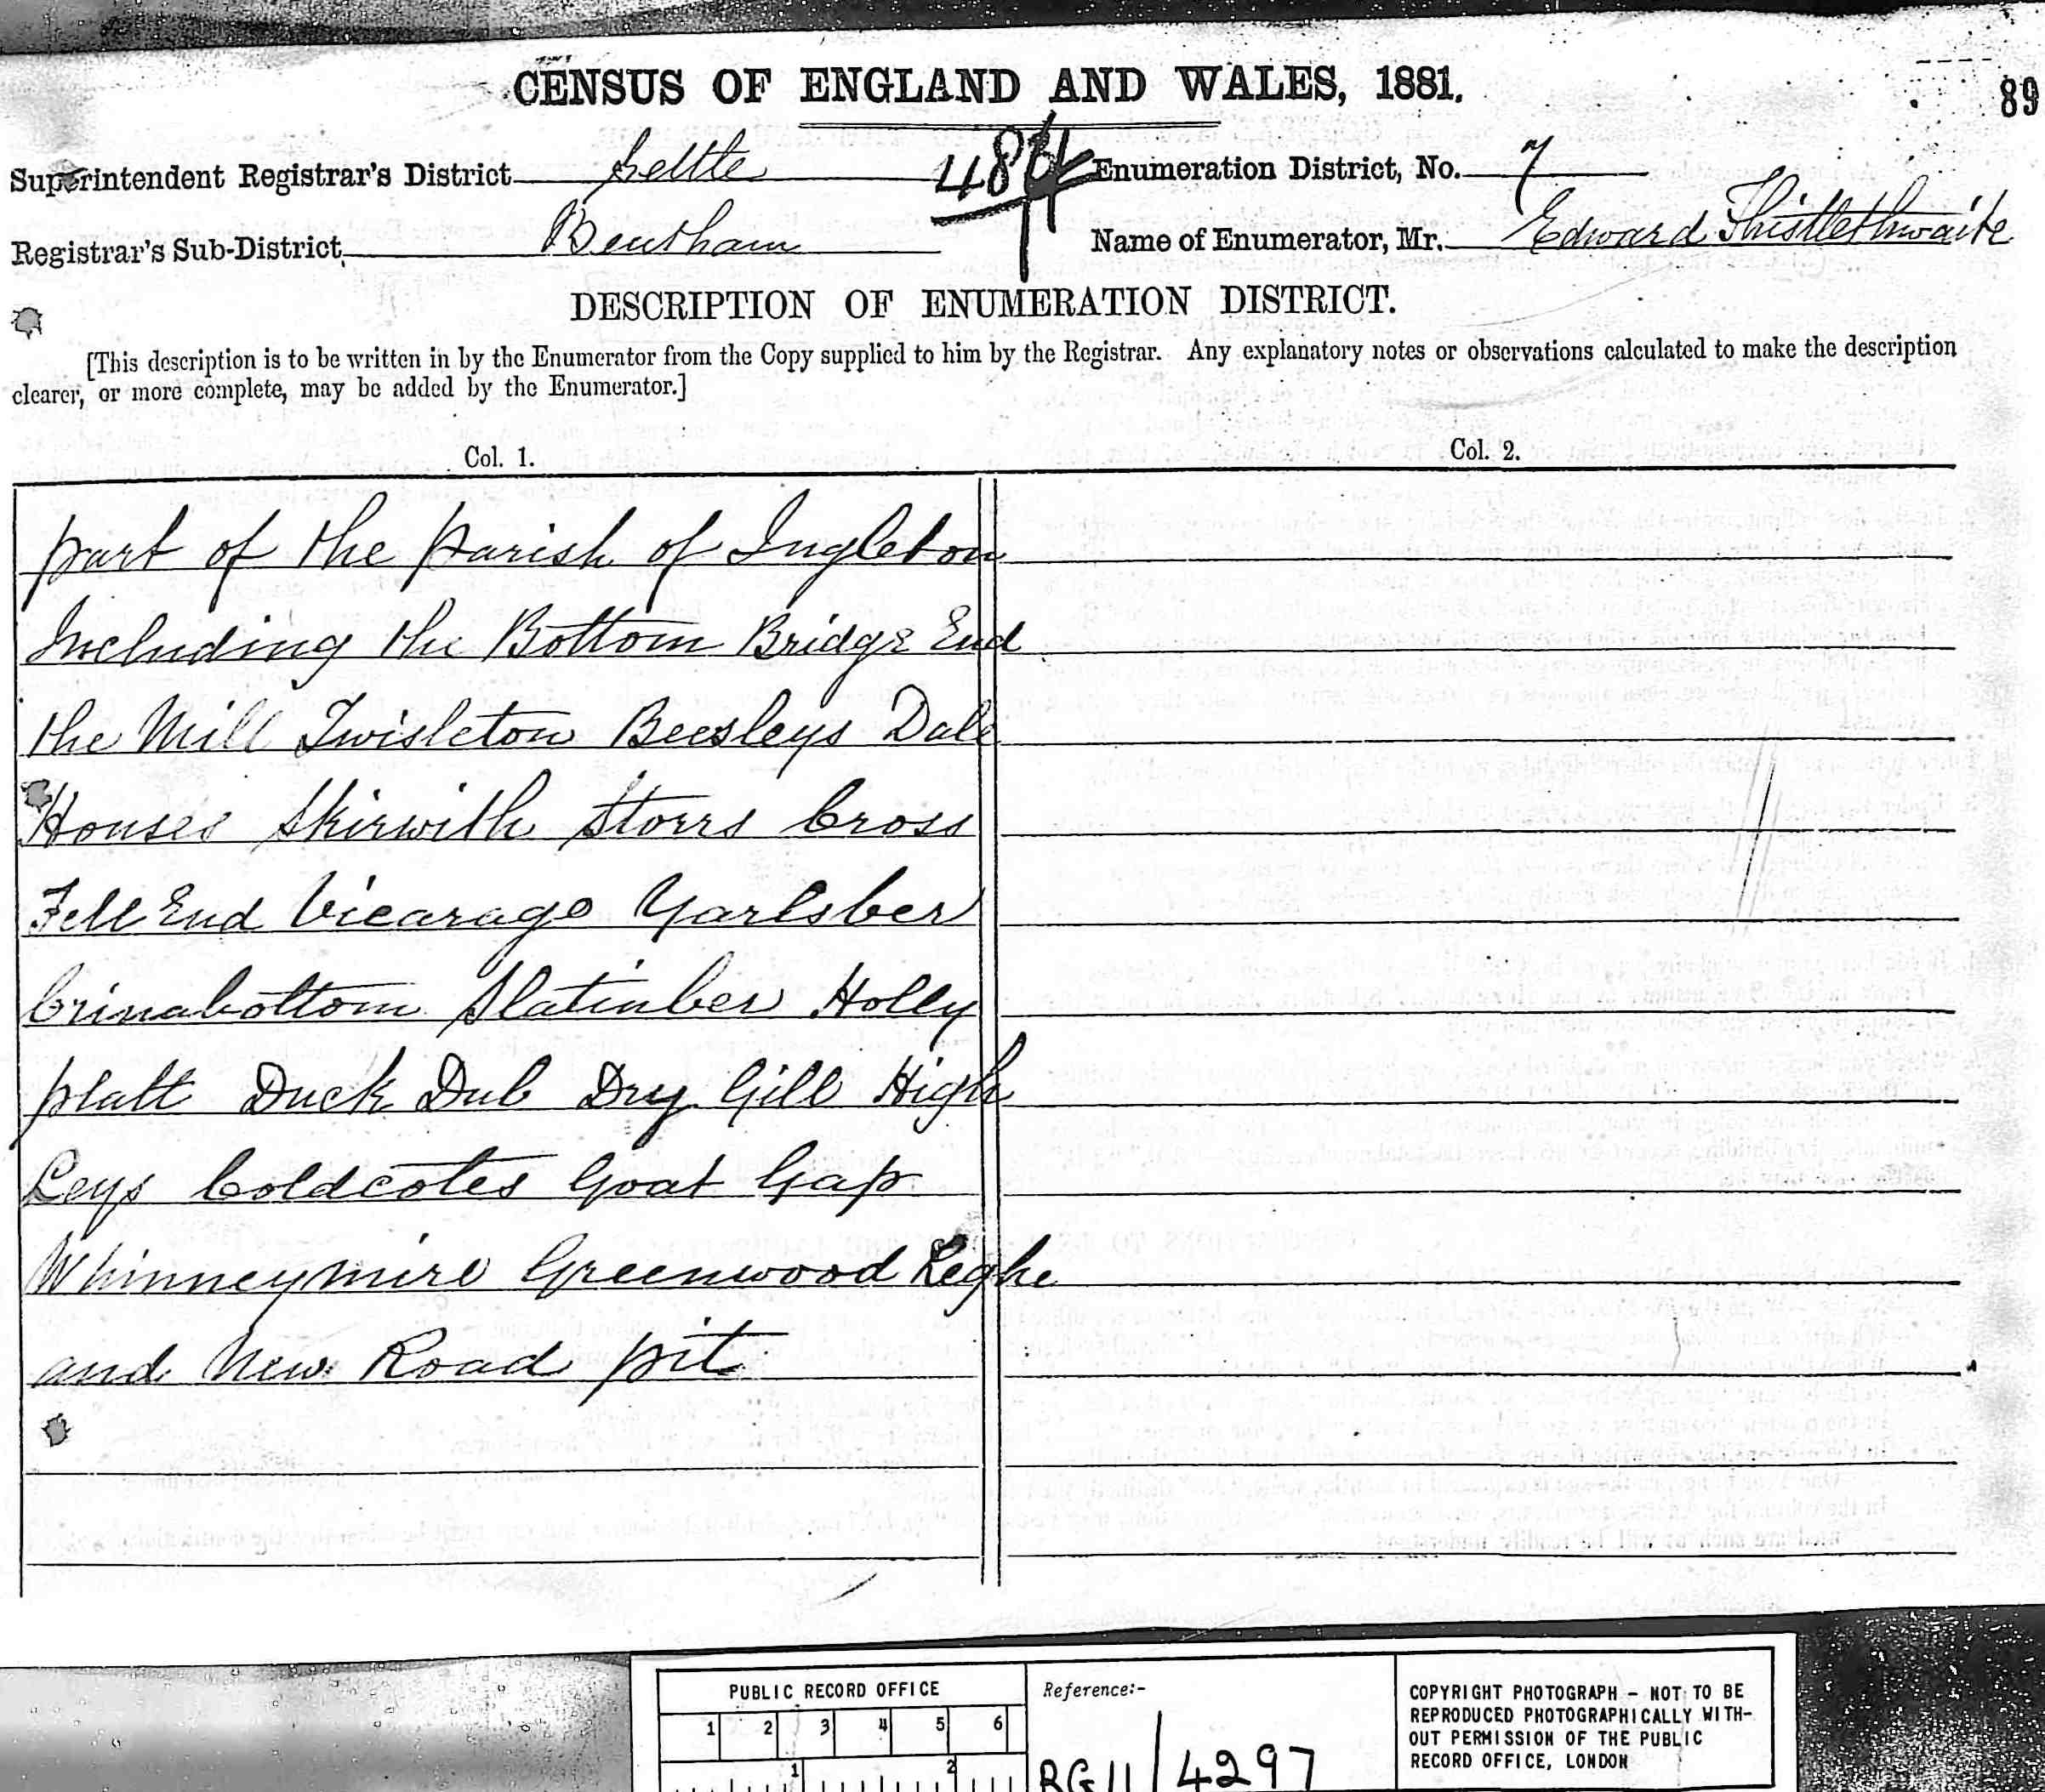 CENSUS OF ENGLAND AND WALES, 1881.
89
Superintendent Registrar's District Settle
Enumeration District, No. 7
Registrar's Sub-District, Bentham
Name of Enumerator, Mr. Edward Thistlethwaite
DESCRIPTION OF ENUMERATION DISTRICT.
[This description is to be written in by the Enumerator from the Copy supplied to him by the Registrar. Any explanatory notes or observations calculated to make the description
clearer, or more complete, may be added by the Enumerator.]
Col. 1.
Col. 2.
part of the parish of Ingleton
Including the Bottom Bridge End
the Mill Twisleton Beesleys Dale
Houses Skirwith Storrs Cross
Fell End Vicarage Yarlsber
Crinabottom Slatinber Holly
platt Duck Dub Dry Gill High
Leys Coldcotes Goat Gap
Whinneymire Greenwood Leghe
and New Road pit
PUBLIC RECORD OFFICE
1 2 3 4 5 6
1 2
Reference:-
RG 11/4297
COPYRIGHT PHOTOGRAPH - NOT TO BE
REPRODUCED PHOTOGRAPHICALLY WITH-
OUT PERMISSION OF THE PUBLIC
RECORD OFFICE, LONDON